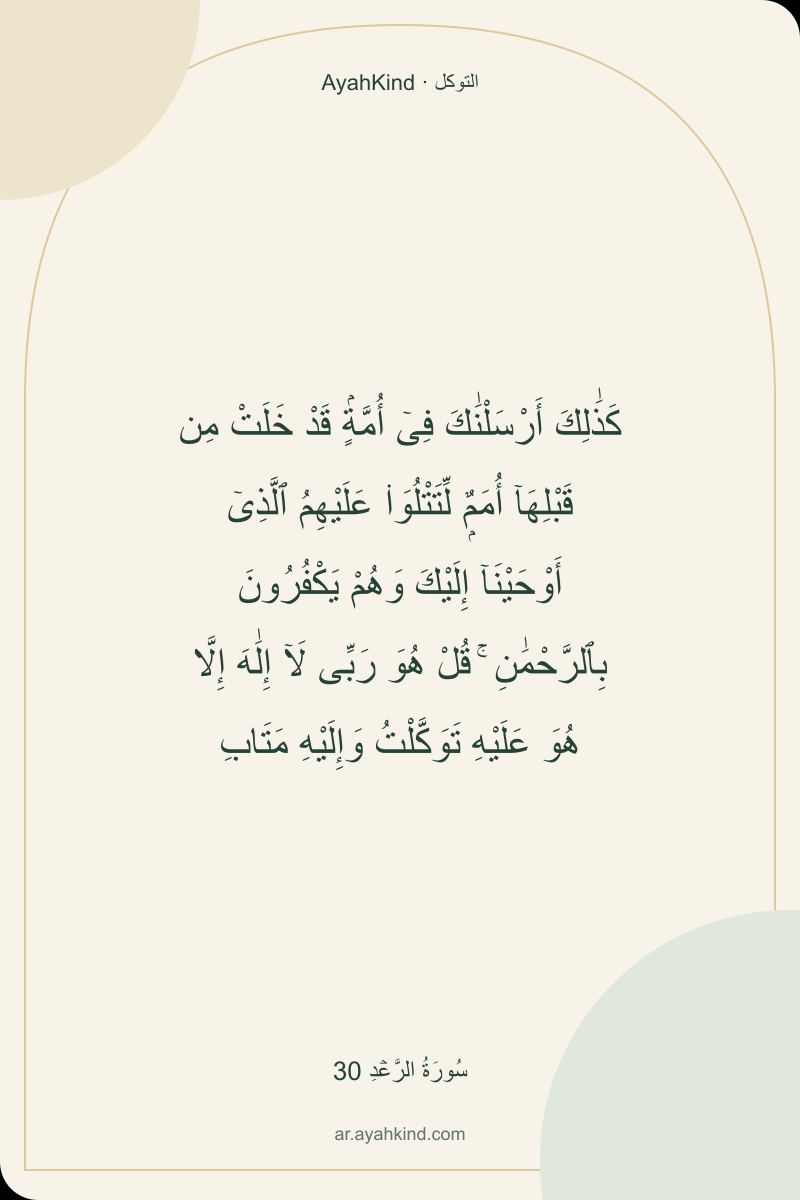 AyahKind · التوكل
كَذَٰلِكَ أَرْسَلْنَٰكَ فِىٓ أُمَّةٍۢ قَدْ خَلَتْ مِن
قَبْلِهَآ أُمَمٌۭ لِّتَتْلُوَا۟ عَلَيْهِمُ ٱلَّذِىٓ
أَوْحَيْنَآ إِلَيْكَ وَهُمْ يَكْفُرُونَ
بِٱلرَّحْمَٰنِ ۚ قُلْ هُوَ رَبِّى لَآ إِلَٰهَ إِلَّا
هُوَ عَلَيْهِ تَوَكَّلْتُ وَإِلَيْهِ مَتَابِ
سُورَةُ الرَّعۡدِ 30
ar.ayahkind.com